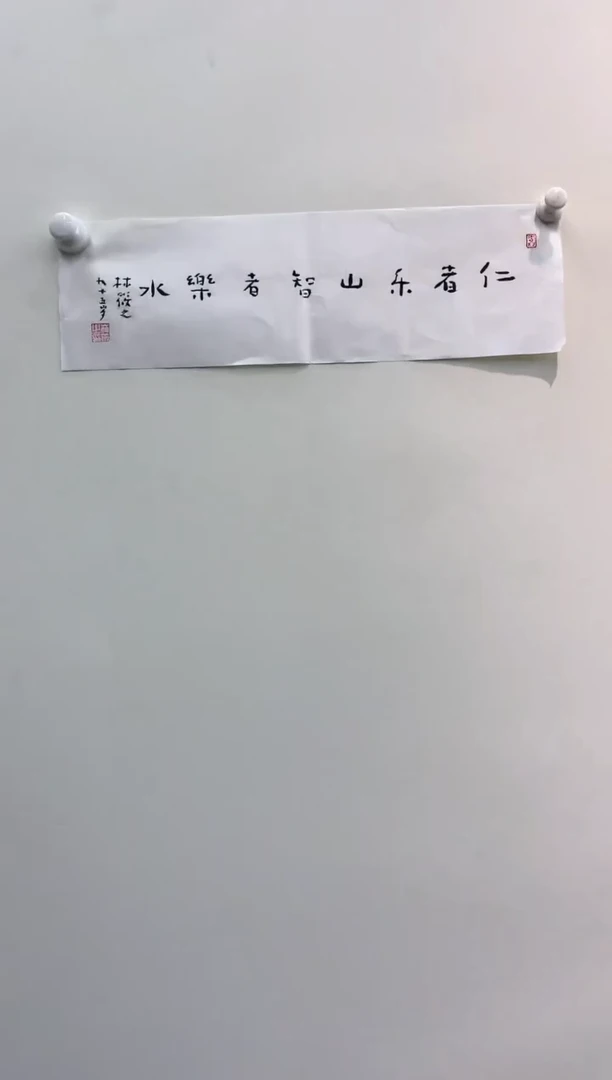 仁者乐山智者樂水
林筱之
九十五岁